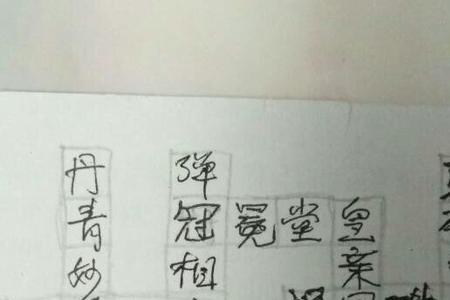 丹青妙
弹冠相
冠冕堂皇
皇亲